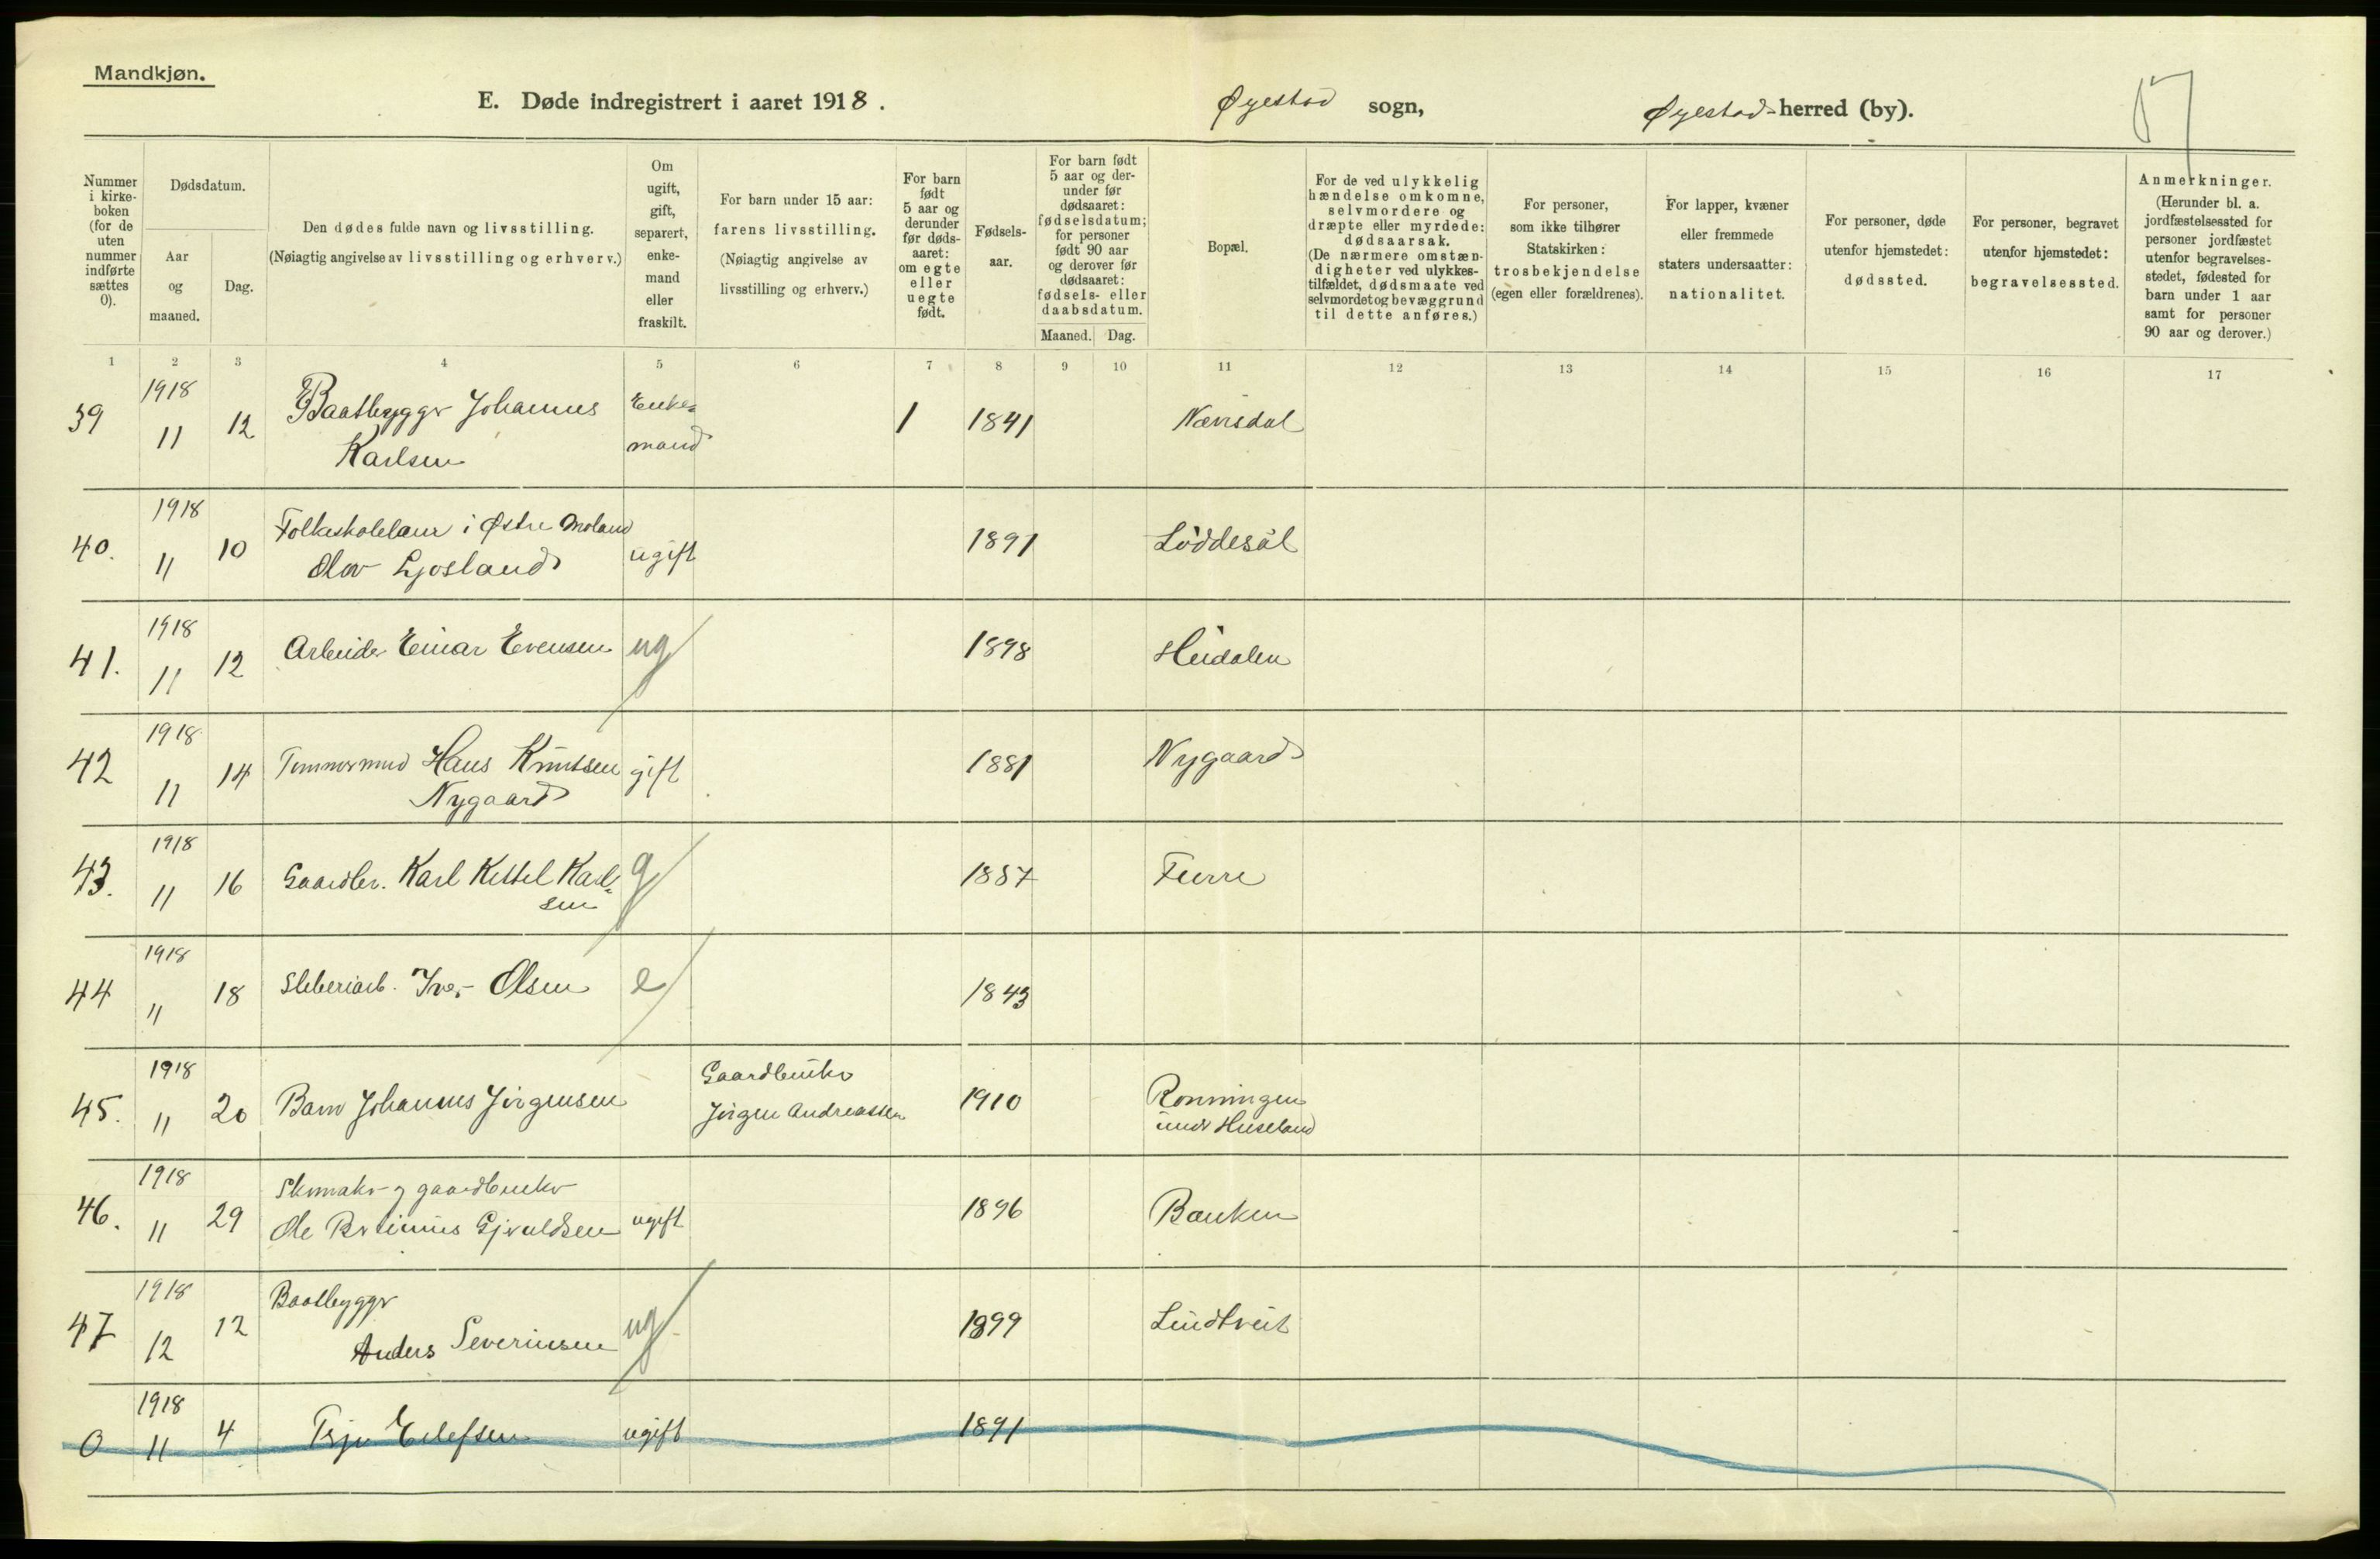 Mandkjøn.
E. Døde indregistrert i aaret 1918.
Øyestad sogn,
Øyestad-herred (by).
Nummer i kirke-boken (for de uten nummer indførte sættes 0).
Dødsdatum.
Aar og maaned.
Dag.
Den dødes fulde navn og livsstilling.
(Nøiagtig angivelse av livsstilling og erhverv.)
Om ugift, gift, separert, enke-mand eller fraskilt.
For barn under 15 aar:
farens livsstilling.
(Nøiagtig angivelse av
livsstilling og erhverv.)
For barn født 5 aar og derunder før døds-aaret: om egte eller uegte født.
Fødsels-aar.
For barn født 5 aar og der-under før dødsaaret: fødselsdatum; for personer født 90 aar og derover før dødsaaret: fødsels- eller daabsdatum.
Maaned. Dag.
Bopæl.
For de ved ulykkelig hændelse omkomne, selvmordere og dræpte eller myrdede: dødsaarsak.
(De nærmere omstæn-digheter ved ulykkes-tilfældet, dødsmaate ved selvmordet og bevæggrund til dette anføres.)
For personer, som ikke tilhører Statskirken: trosbekjendelse (egen eller forældrenes).
For lapper, kvæner eller fremmede staters undersaatter: nationalitet.
For personer, døde utenfor hjemstedet: dødssted.
For personer, begravet utenfor hjemstedet: begravelsessted.
Anmerkninger.
(Herunder bl. a. jordfæstelsessted for personer jordfæstet utenfor begravelses-stedet, fødested for barn under 1 aar samt for personer 90 aar og derover.)
1 2 3 4 5 6 7 8 9 10 11 12 13 14 15 16 17
39 1918 11 12 Baatbygger Johannes Karlsen Enke-mand 1 1841 Nævisdal
40. 1918 11 10 Folkeskolelærer i Østre Moland Olav Ljosland ugift 1891 Løddesøl
41. 1918 11 12 Arbeider Einar Evensen ug 1898 Heidalen
42 1918 11 14 Tømmermand Hans Knutsen Nygaard gift 1881 Nygaard
43. 1918 11 16 Gaardbr. Karl Kittel Karl-sen g 1887 Furre
44 1918 11 18 Sliberiarb. Iver Olsen e 1843
45. 1918 11 20 Barn Johannes Jørgensen Gaardbruker Jørgen Andreassen 1910 Rønningen under Huseland
46. 1918 11 29 Skomaker og gaardbruker Ole Gjeruldsen ugift 1896 Bænken
47 1918 12 12 Baatbygger Anders Severinsen ug 1899 Lindtveit
0 1918 11 4 Terje Eilefsen ugift 1891